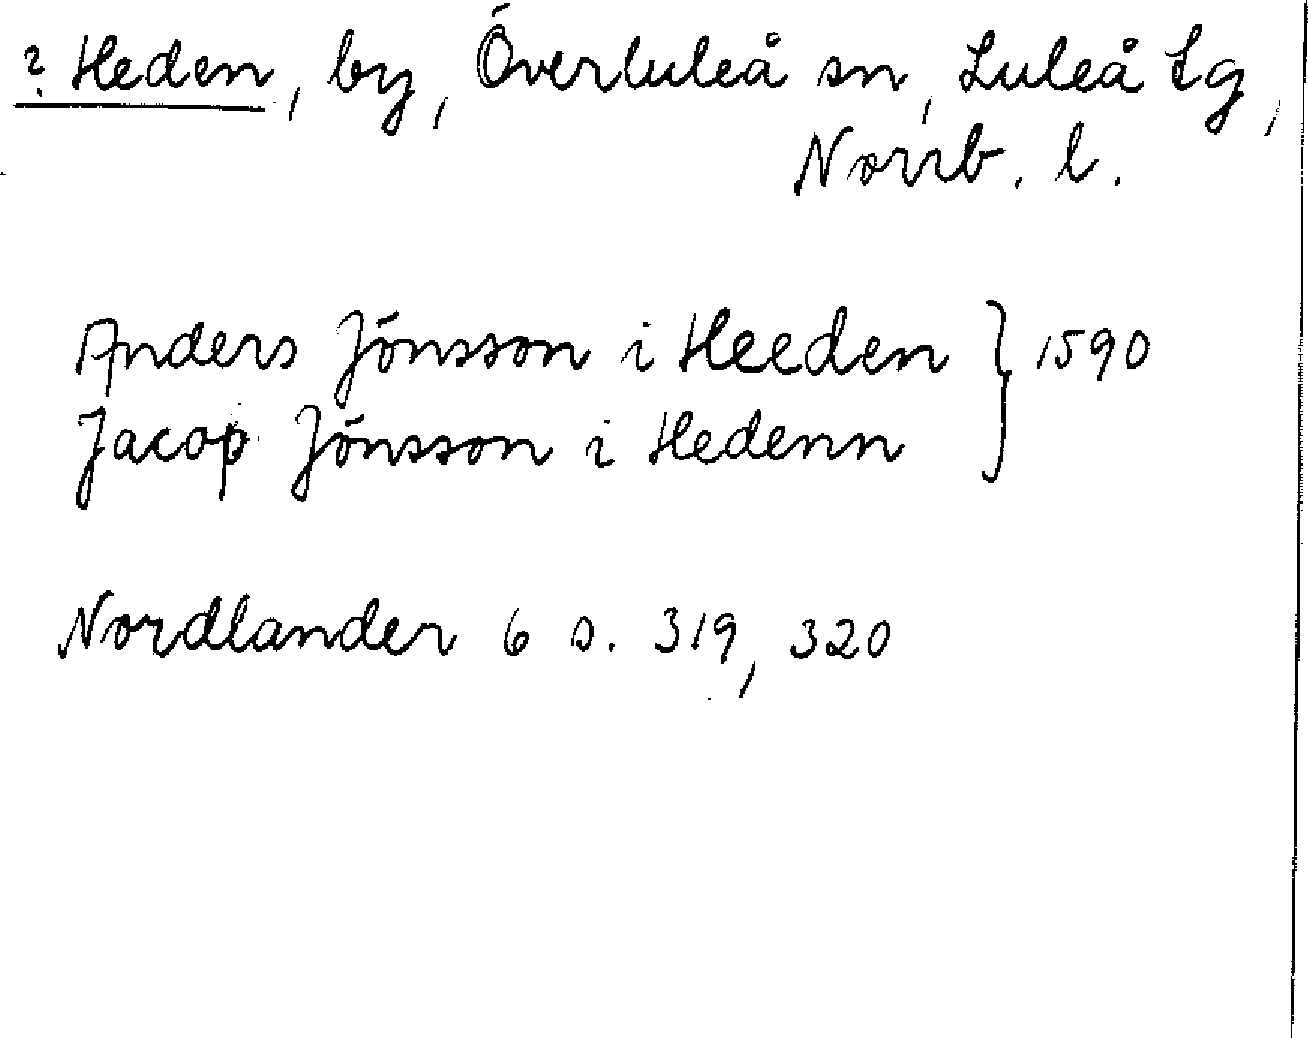 ? Heden, by, Överluleå sn, Luleå tg,
Norrb. l.
Anders Jönsson i Heeden } 1590
Jacop Jönsson i Hedenn
Nordlander 6 s. 319, 320